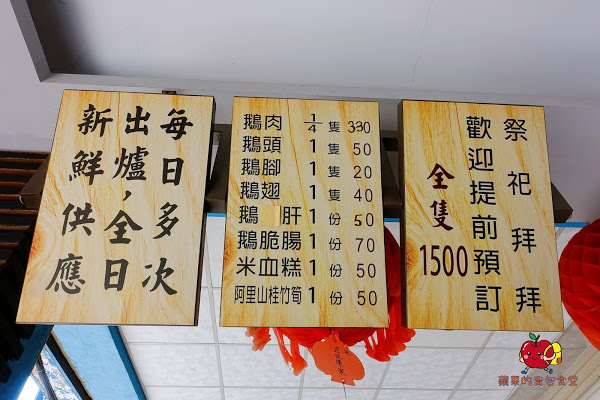 每日多次
出爐，全日
新鮮供應
鵝肉 1/4 隻 330
鵝頭 1 隻 50
鵝腳 1 隻 20
鵝翅 1 隻 40
鵝肝 1 份 50
鵝脆腸 1 份 70
米血糕 1 份 50
阿里山桂竹筍 1 份 50
祭祀拜拜
歡迎提前預訂
全隻
1500
蘋果的食包食堂